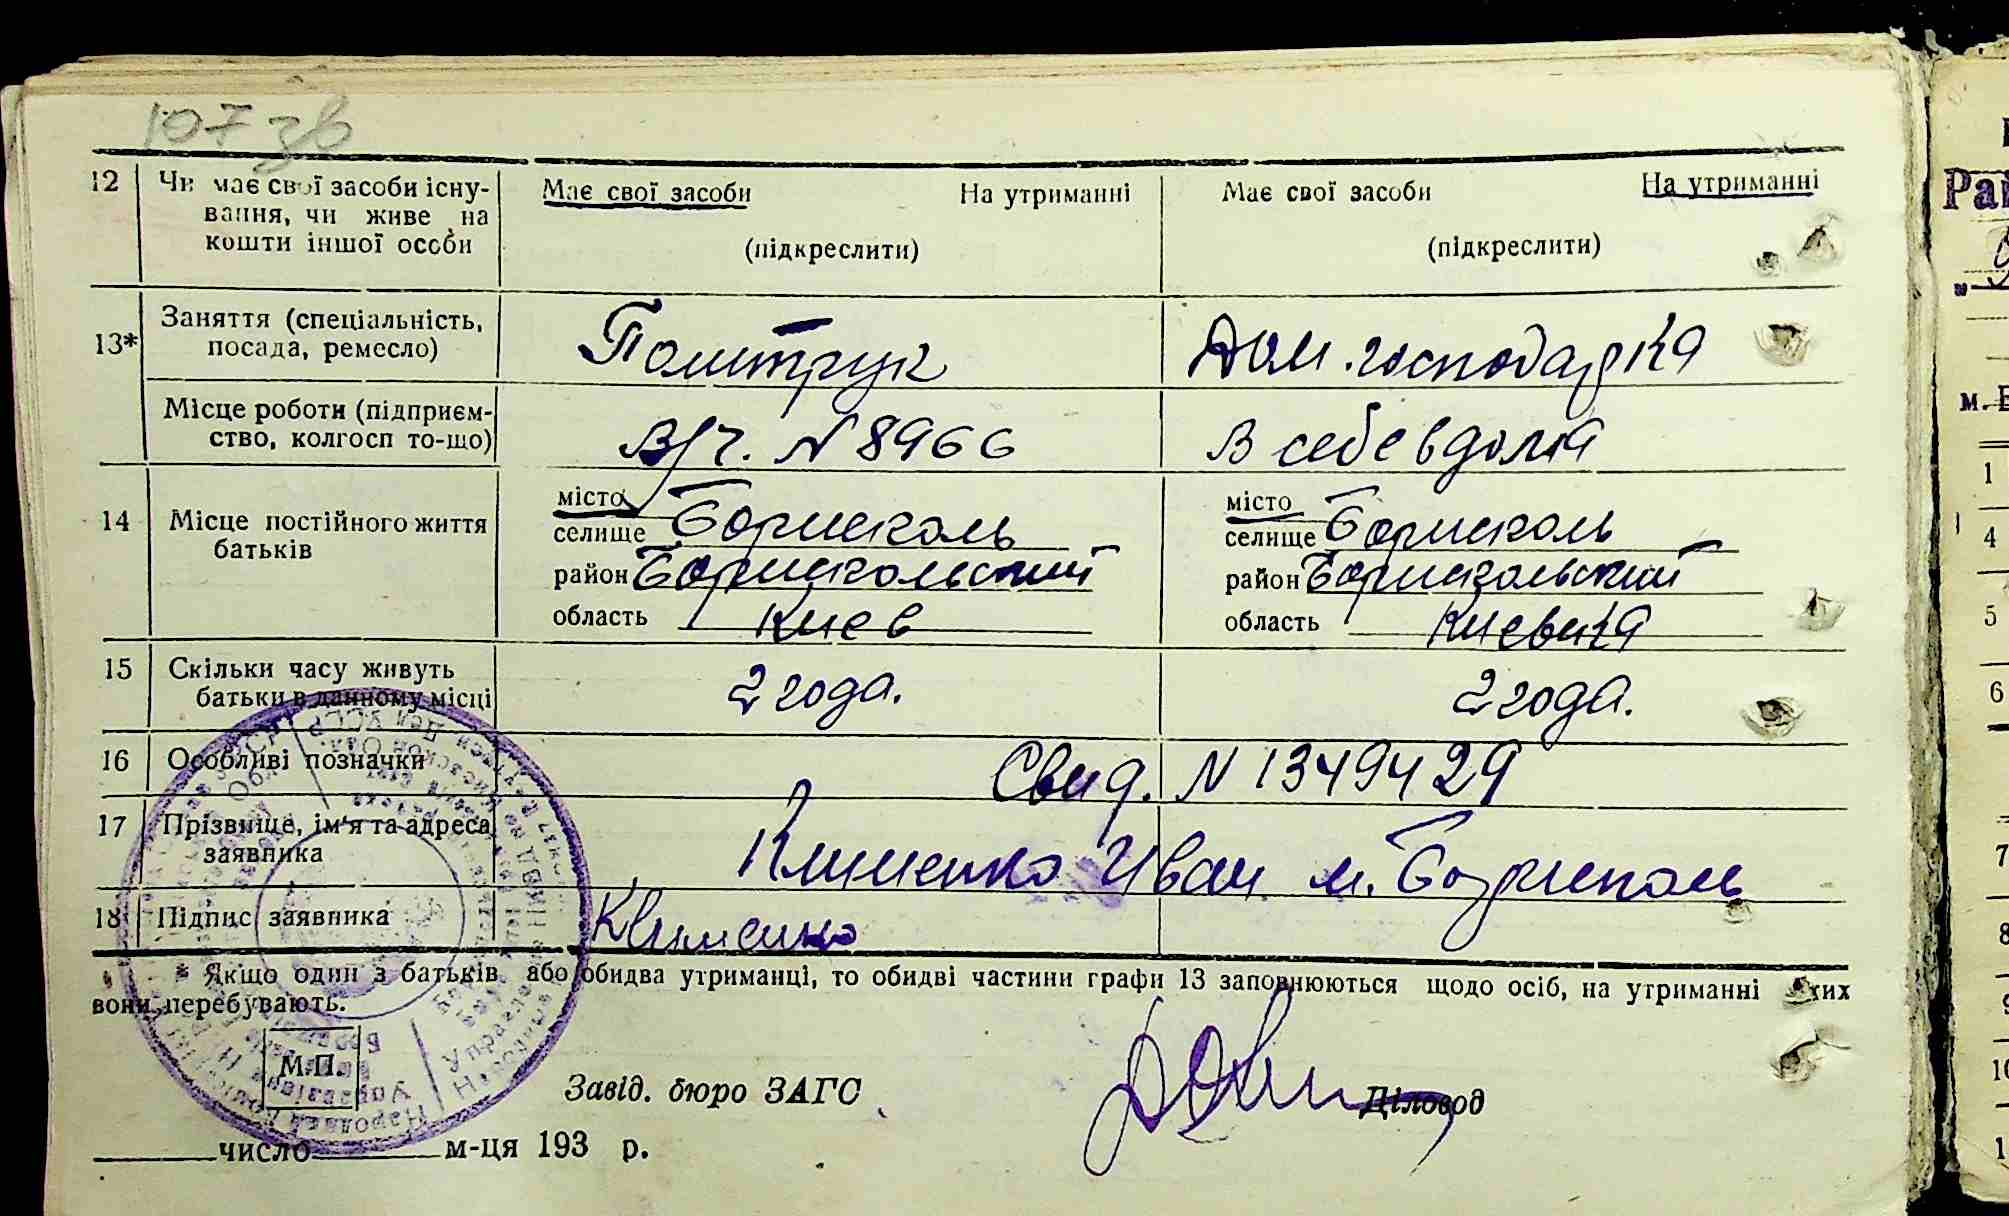 107 зв
12 Чи має свої засоби існу- Має свої засоби На утриманні Має свої засоби На утриманні
вання, чи живе на
кошти іншої особи (підкреслити) (підкреслити)
13* Заняття (спеціальність, Политрук Дом. господарка
посада, ремесло)
Місце роботи (підприєм- В/ч. N 8966 В себе вдома
ство, колгосп то-що)
14 Місце постійного життя місто місто
батьків селище Борисполь селище Борисполь
район Бориспольский район Бориспольский
область Киев область Киевська
15 Скільки часу живуть 2 года. 2 года.
батьки в данному місці
16 Особливі позначки Свид. N 1349429
17 Прізвище, ім'я та адреса Клименко Иван м. Борисполь
заявника
18 Підпис заявника Клименко
* Якщо один з батьків або обидва утриманці, то обидві частини графи 13 заповнюються щодо осіб, на утриманні яких
вони перебувають.
М.П.
Завід. бюро ЗАГС Діловод
число м-ця 193 р.